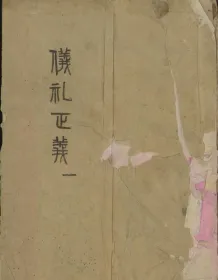 儀礼正義一